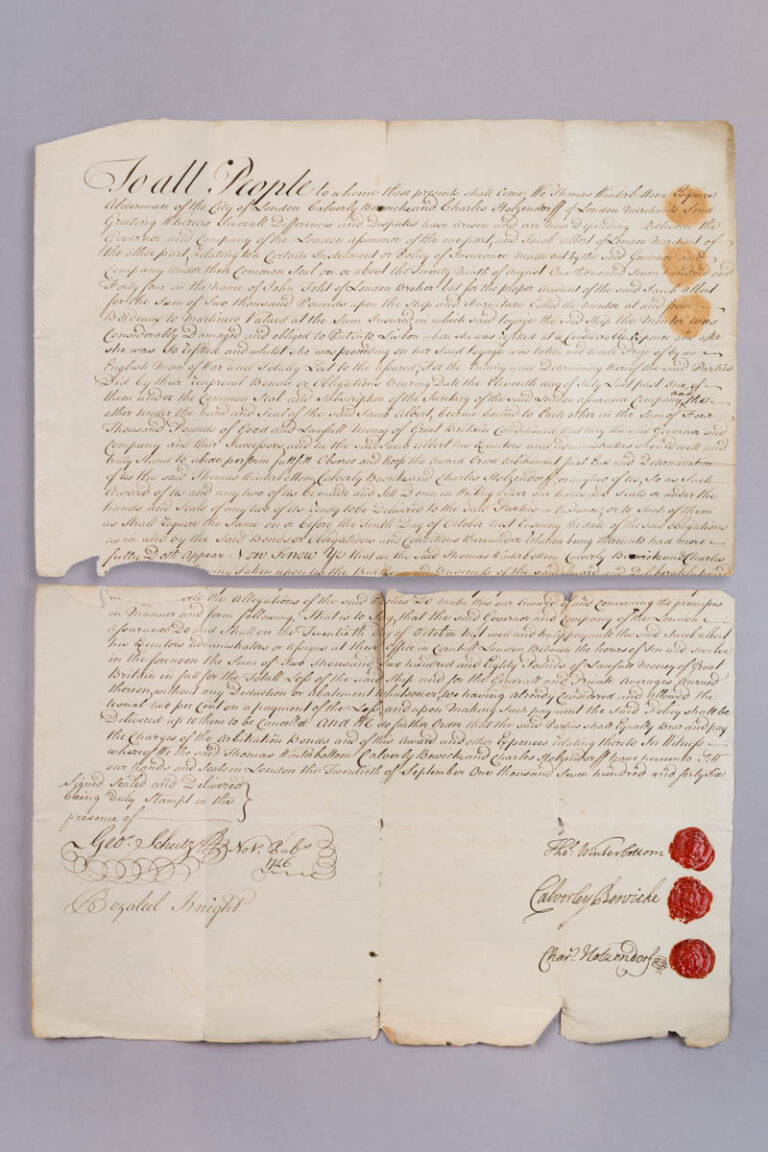 To all People to whome these presents shall Come We Thomas Winterbottom Esquire
Alderman of the City of London Calverly Bewicke and Charles Holzendorff of London Merchants Send
Greeting Whereas Severall Differences and Disputes have Arisen and are now Depending Between the
Governor and Company of the London assurance of the one part, and Jacob Albert of London Merchant of
the other part, relating to a Certain Instrument or Policy of Insurance made out by the said Governor and
Company Under their Common Seal on or about the Twenty Ninth of August One thousand Seven hundred and
Forty four in the Name of John Tolet of London Broker but for the proper Account of the said Jacob Albert
for the Sum of Two thousand Pounds upon the Ship and Called the Mentor at and from
Bordeaux to Martineco Valued at the Sum Insured, in which said Voyage the said Ship the Mentor was
Considerably Damaged and obliged to Put into Lisbon where she was refitted at a Considerable Expence and after
she was So refitted and whilst she was proceeding on her Said Voyage was taken and made Prize of by an
English Man of War and Totally Lost to the assured, For the Ending and Determining Whereof the said Parties
Did by their reciprocal Bonds or Obligations Bearing Date the Eleventh day of July Last past One of
them under the Common Seal and Subscription of the Secretary of the said London assurance Company and the
other under the hand and Seal of the said Jacob Albert, become bound to Each other in the Sum of Four
Thousand Pounds of Good and Lawfull Money of Great Britain Conditioned that they the said Governor and
Company and their Successors, and he the said Jacob Albert his Executors and Administrators should well and
truly Stand to abide perform fullfill Observe and Keep the Award Order Arbitrament final End and Determination
of us the said Thomas Winterbottom, Calverly Bewicke and Charles Holzendorff or any two of us, So as Such
Award of us and any two of us be made and Sett Down in Writing under our hands and Seals or under the
hands and Seals of any two of us ready to be Delivered to the said Parties in Variance, or to Such of them
as Shall require the Same on or before the Tenth Day of October next Ensuing the date of the said Obligations
as in and by the Said Bonds or Obligations and Conditions thereunder relation being thereunto had more
fully Doth Appear. Now Know Ye that we the said Thomas Winterbottom Calverly Bewicke and Charles
taken upon us the Burthen and Business of the said Award and Deliberately
the Allegations of the said Parties Do make this our Award of and concerning the premisses
in Manner and form following, That is to Say, that the said Governor and Company of the London
assurance Do and Shall on the Twentieth day of October next well and truly pay unto the said Jacob Albert
his Executors Administrators or Assigns at their Office in Cornhill London Between the hours of Ten and Twelve
in the forenoon the Sum of Two Thousand Two hundred and Eighty Pounds of Lawfull money of Great
Britain in full for the Totall Loss of the said Ship and for the Generall and Private Averages Accrued
thereon, without any Deduction or abatement whatsoever, we having already Considered and allowed the
usual two per Cent on a payment of the Loss, and upon making Such payment the Said Policy shall be
Delivered up to them to be Cancell'd And We do further Order that the said Parties shall Equally Bear and pay
the Charges of the Arbitration Bonds and of this Award and other Expences relating thereto In Witness
whereof We the said Thomas Winterbottom Calverly Bewicke and Charles Holzendorff have hereunto Sett
our hands and Seals in London the Twentieth of September One thousand Seven hundred and forty Six
Signed Sealed and Delivered
being Duly Stampt in the
presence of
Geo: Schutz Not. Pubs
1746
Bezaleel Knight
Tho: Winterbottom
Calverley Bewicke
Char.s Holzendorf